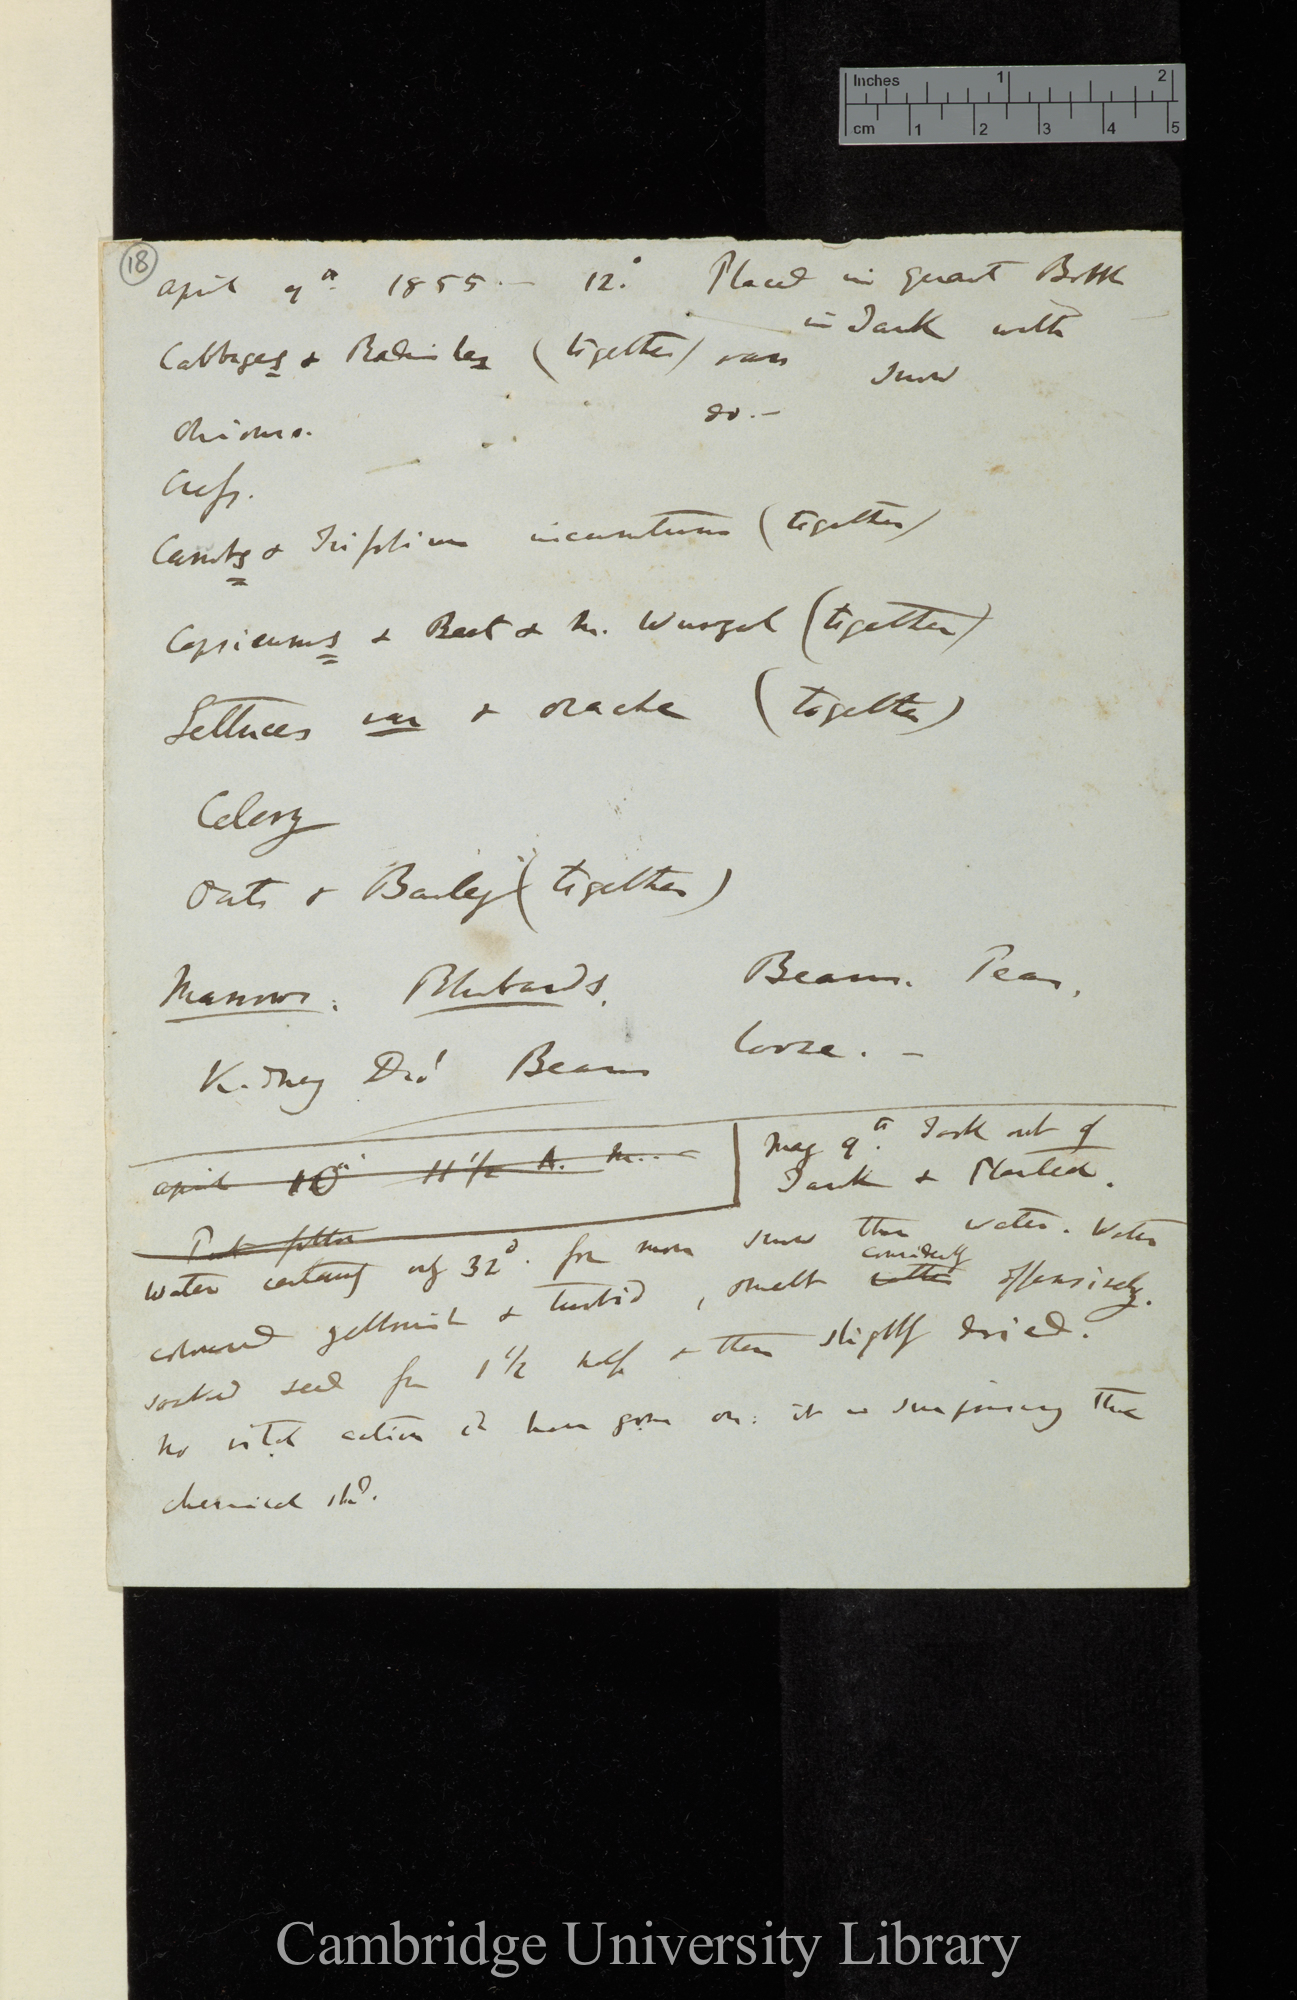 Inches 1 2
cm 1 2 3 4 5
18
April 9th. 1855.— 12°. Placed in quart Bottle
in Tank with
Snow
Cabbages & Radishes (together) vars
do.—
Onions.
Cress.
Carrots & Trifolium incarnatum (together)
Capsicums & Beet & M. Wurzel (together)
Lettuces var & Orache (together)
Celery
Oats & Barley (together)
Marrows. Rhubards. Beans. Peas,
Kidney Do! Beans loose. —
April 10th 11 1/2 A. M.. —
May 9th. Took out of
Tank & Planted.
Put fotten
Water certainly only 32°. for more snow than water. Water
coloured yellowish & turbid, smelt considerably offensively.
soaked seed for 1 1/2 & then slightly dried.
No vital action cd have gone on: it is surprising that
chemical shd.
Cambridge University Library